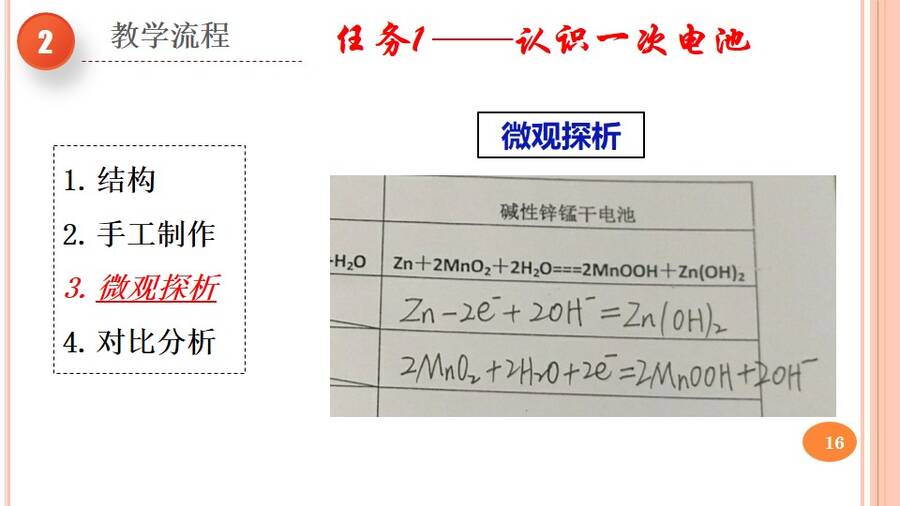 2
教学流程
任务1——认识一次电池
微观探析
1. 结构
2. 手工制作
3. 微观探析
4. 对比分析
碱性锌锰干电池
H₂O Zn＋2MnO₂＋2H₂O===2MnOOH＋Zn(OH)₂
Zn-2e⁻+2OH⁻=Zn(OH)₂
2MnO₂+2H₂O+2e⁻=2MnOOH+2OH⁻
16